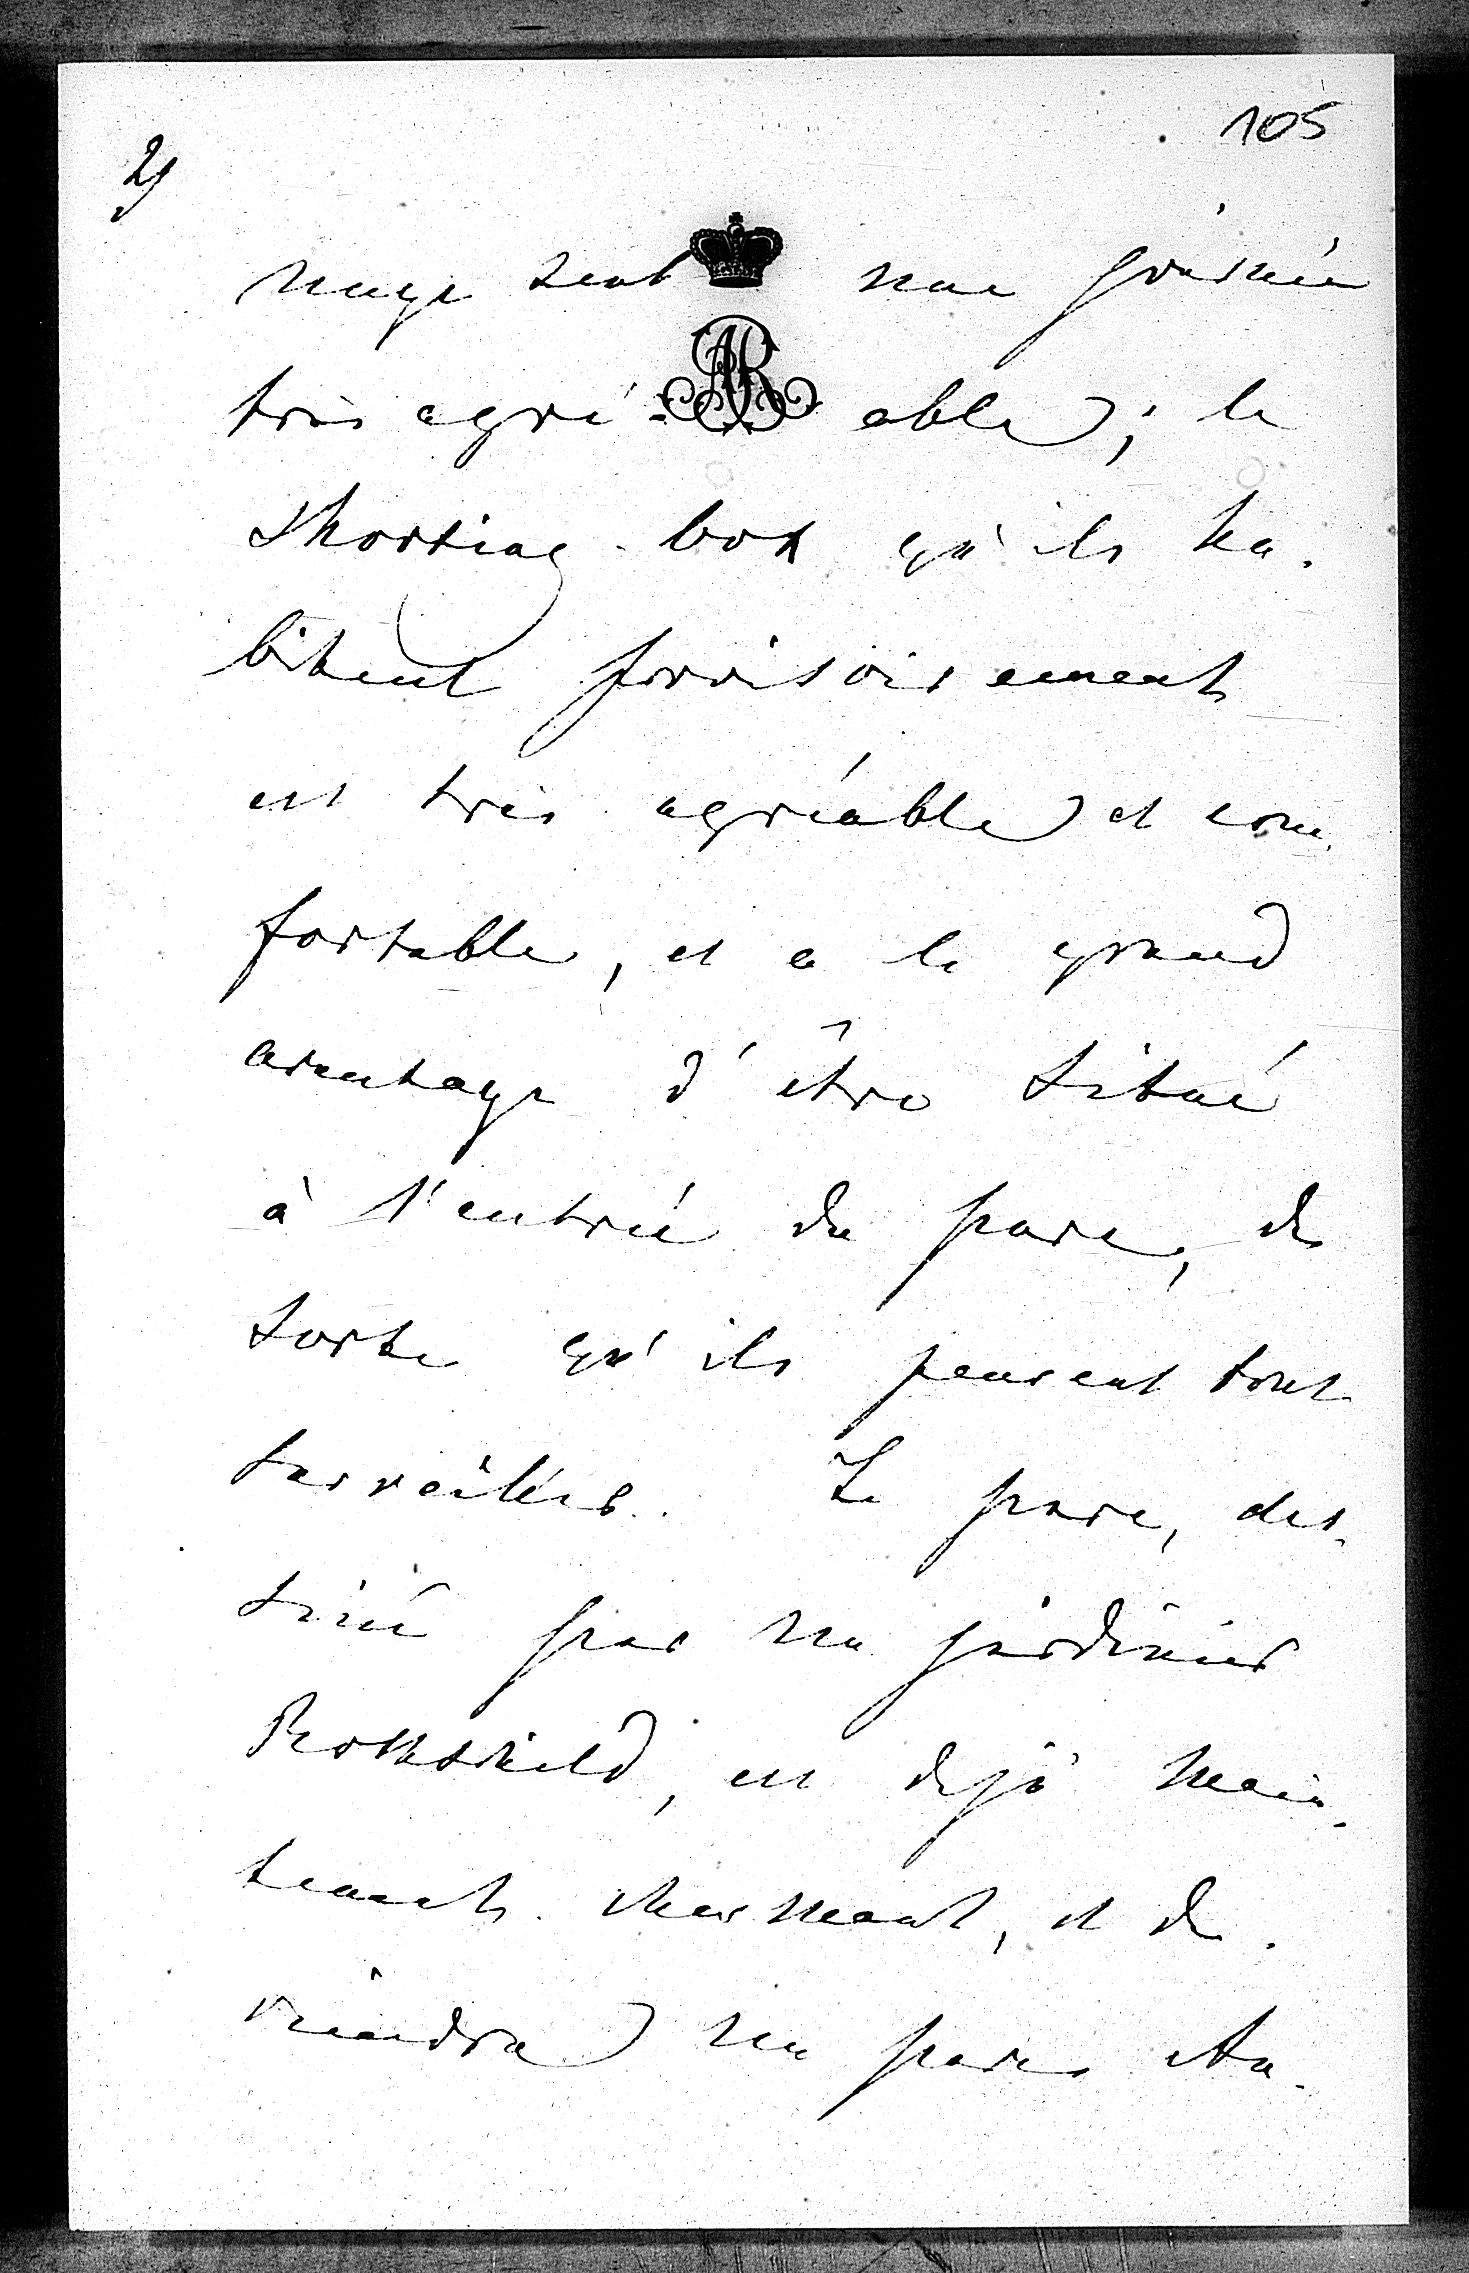 105
2)
nage tout une journée
très agré- able; le
Shooting-box qu'ils ha-
bitent provisoirement
est très agréable et com-
fortable, et a le grand
avantage d'être situé
à l'entrée du parc, de
sorte qu'ils peuvent tout
surveiller. Le parc, des-
siné par un jardinier
Rothschild, est déjà main-
tenant charmant, et de-
viendra un parc